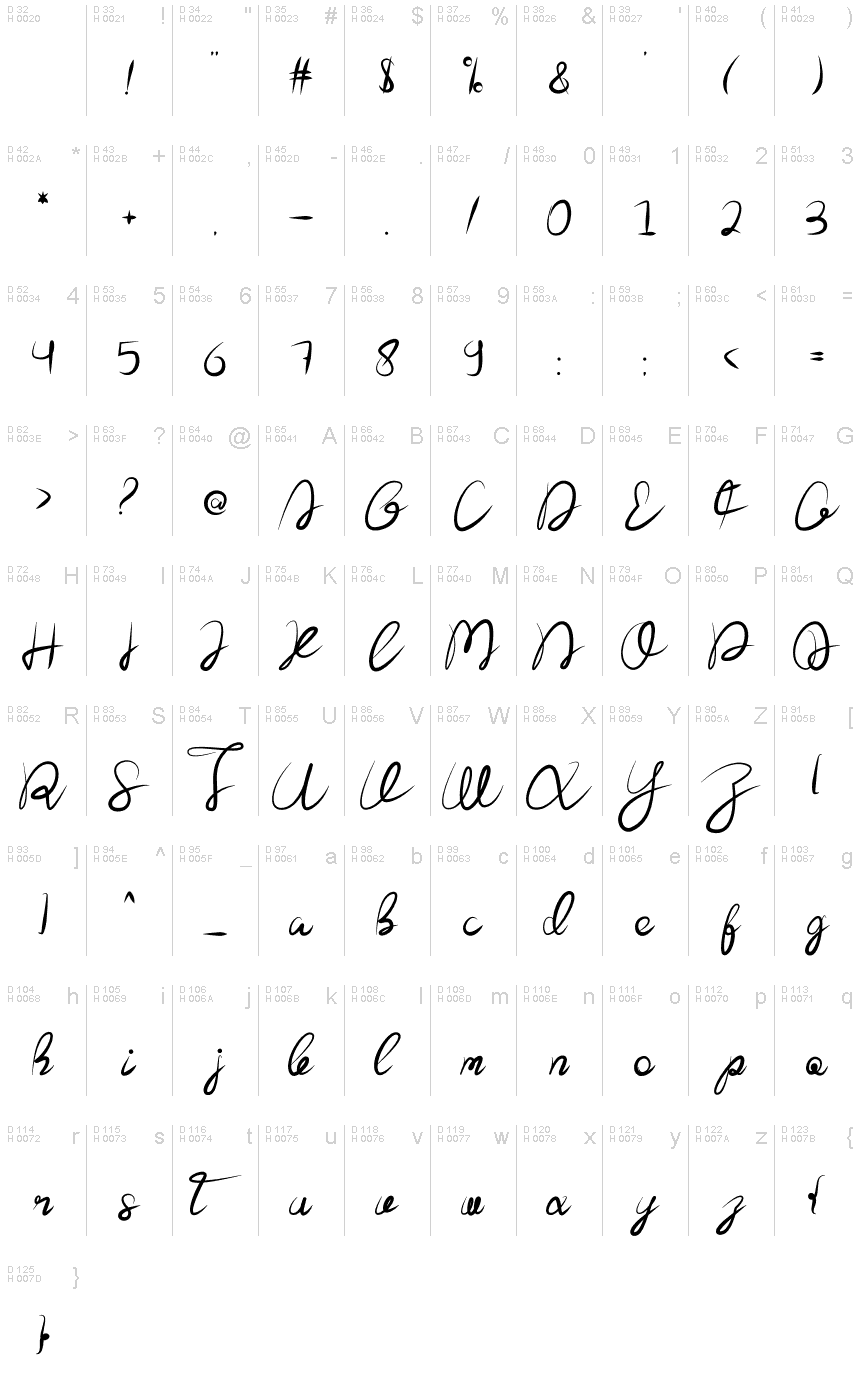 D 32 D 33 ! D 34 " D 35 # D 36 $ D 37 % D 38 & D 39 ' D 40 ( D 41 )
H 0020 H 0021 H 0022 H 0023 H 0024 H 0025 H 0026 H 0027 H 0028 H 0029
! " # $ % & ' ( )
D 42 * D 43 + D 44 , D 45 - D 46 . D 47 / D 48 0 D 49 1 D 50 2 D 51 3
H 002A H 002B H 002C H 002D H 002E H 002F H 0030 H 0031 H 0032 H 0033
* + , - . / 0 1 2 3
D 52 4 D 53 5 D 54 6 D 55 7 D 56 8 D 57 9 D 58 : D 59 ; D 60 < D 61 =
H 0034 H 0035 H 0036 H 0037 H 0038 H 0039 H 003A H 003B H 003C H 003D
4 5 6 7 8 9 : ; < =
D 62 > D 63 ? D 64 @ D 65 A D 66 B D 67 C D 68 D D 69 E D 70 F D 71 G
H 003E H 003F H 0040 H 0041 H 0042 H 0043 H 0044 H 0045 H 0046 H 0047
> ? @ A B C D E F G
D 72 H D 73 I D 74 J D 75 K D 76 L D 77 M D 78 N D 79 O D 80 P D 81 Q
H 0048 H 0049 H 004A H 004B H 004C H 004D H 004E H 004F H 0050 H 0051
H I J K L M N O P Q
D 82 R D 83 S D 84 T D 85 U D 86 V D 87 W D 88 X D 89 Y D 90 Z D 91 [
H 0052 H 0053 H 0054 H 0055 H 0056 H 0057 H 0058 H 0059 H 005A H 005B
R S T U V W X Y Z [
D 93 ] D 94 ^ D 95 _ D 97 a D 98 b D 99 c D 100 d D 101 e D 102 f D 103 g
H 005D H 005E H 005F H 0061 H 0062 H 0063 H 0064 H 0065 H 0066 H 0067
] ^ _ a b c d e f g
D 104 h D 105 i D 106 j D 107 k D 108 l D 109 m D 110 n D 111 o D 112 p D 113 q
H 0068 H 0069 H 006A H 006B H 006C H 006D H 006E H 006F H 0070 H 0071
h i j k l m n o p q
D 114 r D 115 s D 116 t D 117 u D 118 v D 119 w D 120 x D 121 y D 122 z D 123 {
H 0072 H 0073 H 0074 H 0075 H 0076 H 0077 H 0078 H 0079 H 007A H 007B
r s t u v w x y z {
D 125 }
H 007D
}